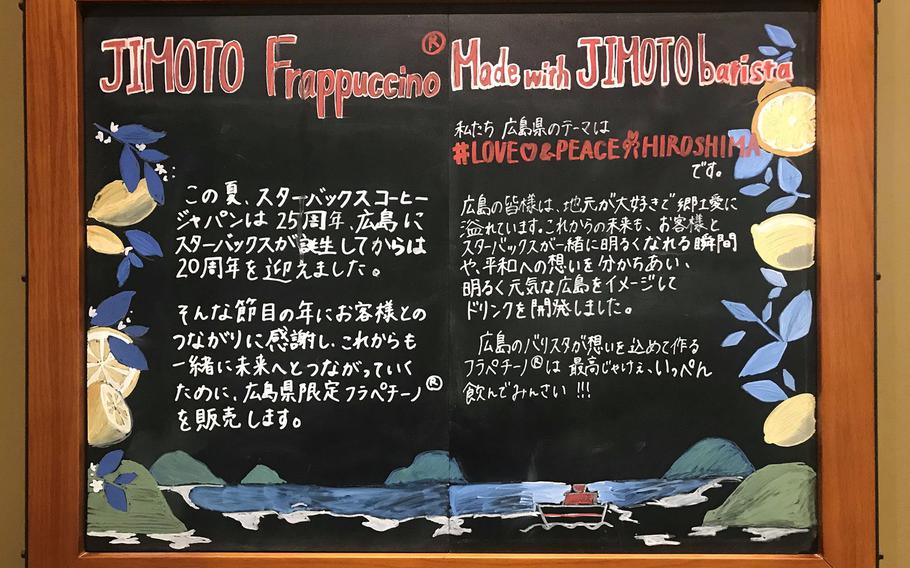 JIMOTO Frappuccino® Made with JIMOTO barista
この夏、スターバックス コーヒー
ジャパンは 25周年、広島に
スターバックスが誕生してからは
20周年を迎えました。
そんな節目の年にお客様との
つながりに感謝し、これからも
一緒に未来へとつながっていく
ために、広島県限定フラペチーノ®
を販売します。
私たち 広島県のテーマは
#LOVE♡&PEACE HIROSHIMA
です。
広島の皆様は、地元が大好きで郷土愛に
溢れています。これからの未来も、お客様と
スターバックスが一緒に明るくなれる瞬間
や、平和への想いを分かちあい、
明るく元気な広島をイメージして
ドリンクを開発しました。
広島のバリスタが想いを込めて作る
フラペチーノ®は 最高じゃけぇ、いっぺん
飲んでみんさい !!!